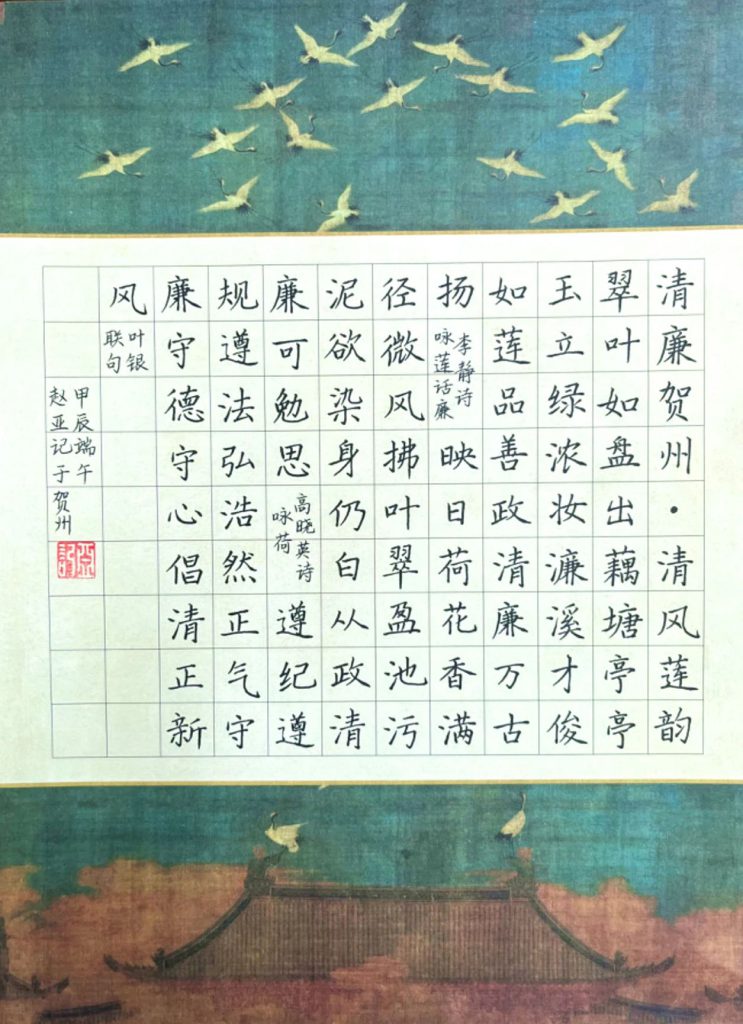 清廉贺州·清风莲韵
翠叶如盘出藕塘亭亭
玉立绿浓妆濂溪才俊
如莲品善政清廉万古
扬
李静诗
咏莲话廉
映日荷花香满
径微风拂叶翠盈池污
泥欲染身仍白从政清
廉可勉思
高晓英诗
咏荷
遵纪遵
规遵法弘浩然正气守
廉守德守心倡清正新
风
叶银
联句
甲辰端午
赵亚记于贺州